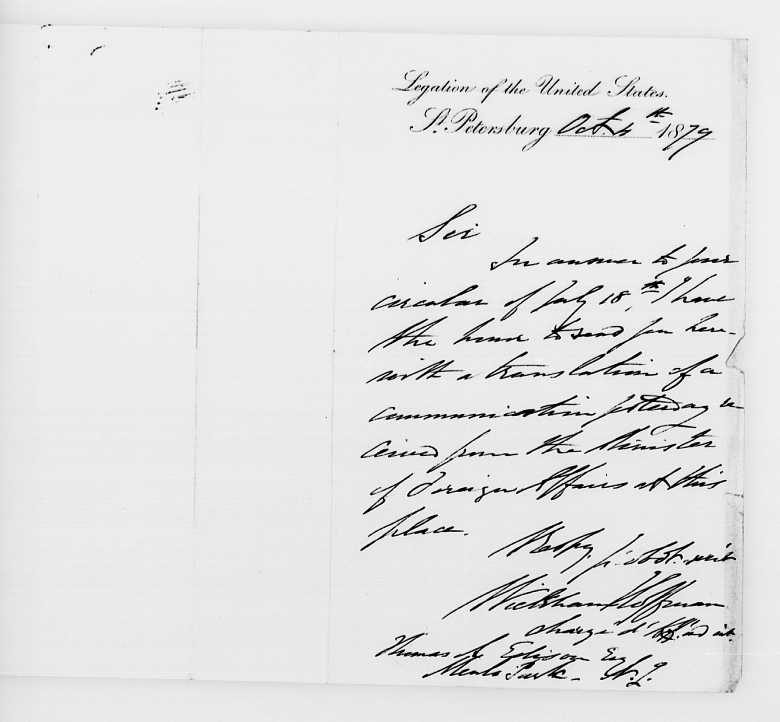 Legation of the United States.
St. Petersburg Oct. 4th 1879
Sir
In answer to your
circular of July 18th, I have
the honor to send you here-
with a translation of a
communication yesterday re
ceived from the Minister
of Foreign Affairs at this
place.
Respy. yr. obdt. servt
Wickham Hoffman
chargé d'Aff. ad int.
Thomas A. Edison Esq
Menlo Park - N.J.